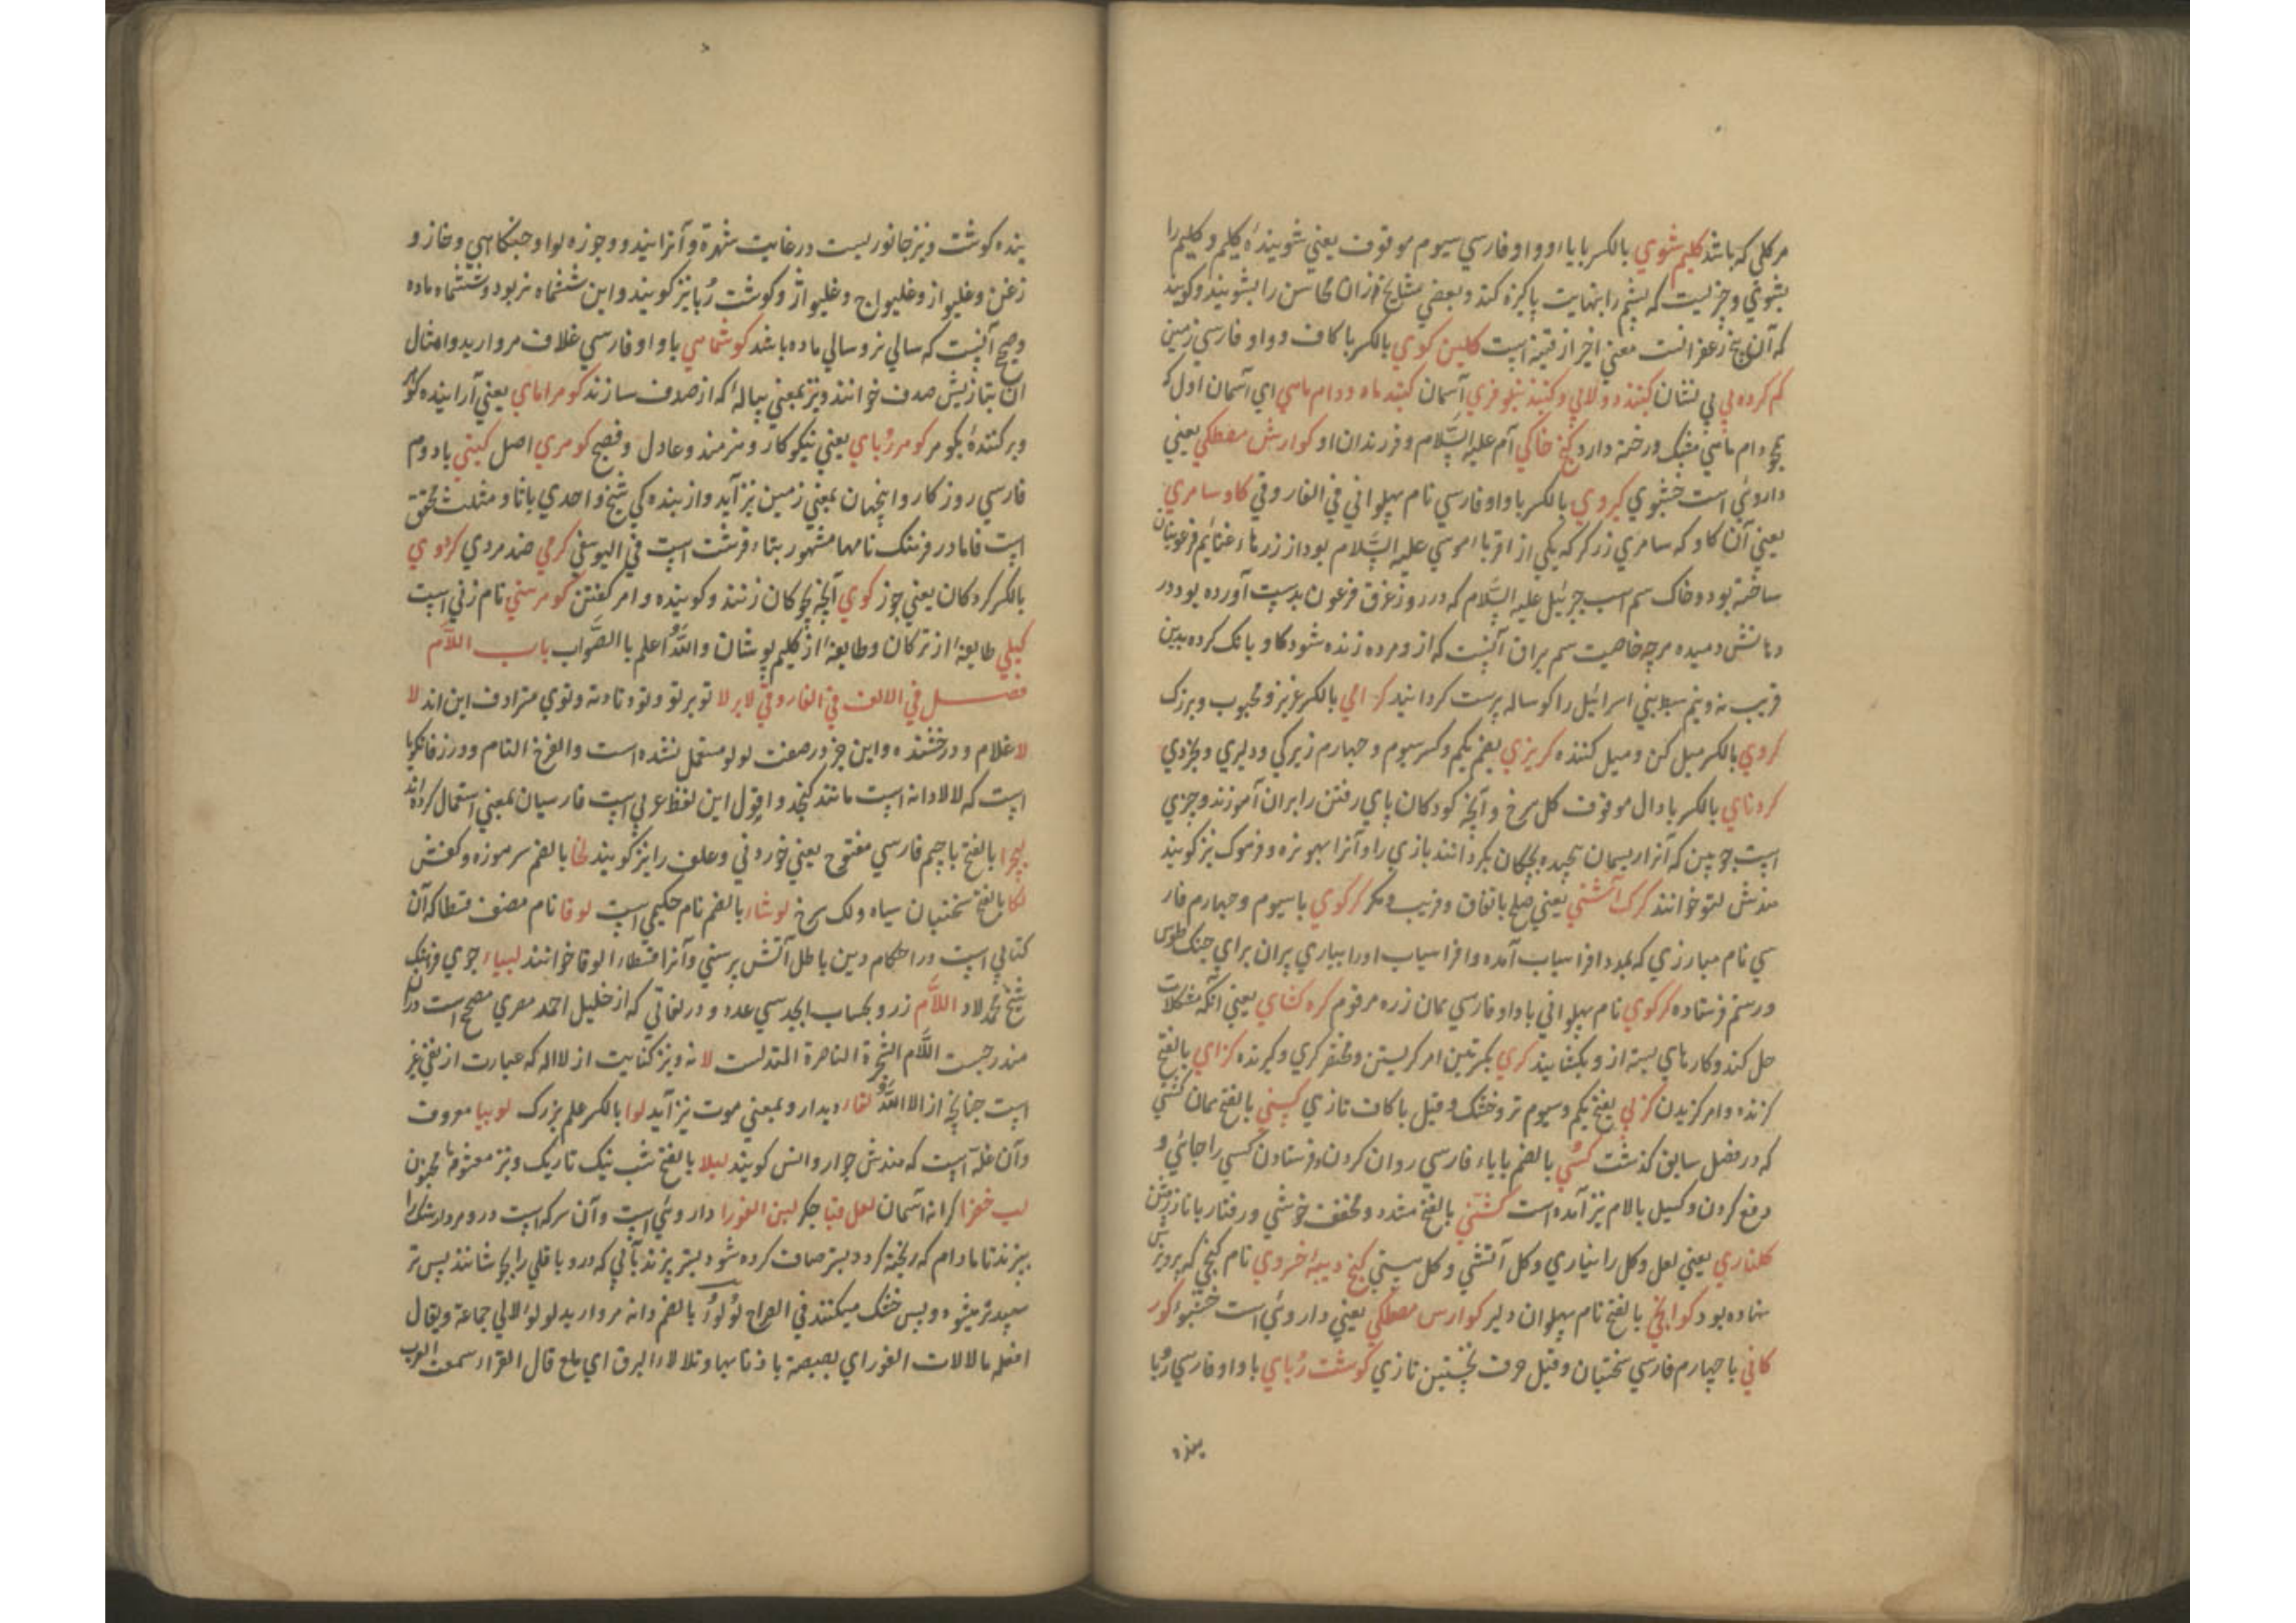 هر کلی که باشد کلیم شوی بالکسر بایا او واو فارسی سیوم موقوف یعنی شوینده کلیم و کلیم را
بشوی و چیزیست که پشم را بنهایت پاکیزه کند و بعضی مشایخ ازان محاسن را بشویند و کویند
که آن بیخ زعفرانست معنی اخیر از قنیه است کلین کوی بالکسر با کاف و واو فارسی زمین
کم کرده پی بی نشان کنبد دولابی و کنبد نیلوفری آسمان کنبد ماه و دام ماهی ای آسمان اول که
همچو دام ماهی مشبک و رخنه دارد کنج خاکی آدم علیه السلام و فرزندان او کوارش مصطکی یعنی
داروئی است خشبوی کیروی بالکسر با واو فارسی نام پهلوانی فی الفاروقی کاو سامری
یعنی آن کاو که سامری زرکر که یکی از اقرباء موسی علیه السلام بود از زرهاء غنایم فرعونیان
ساخته بود و خاک سم اسب جبرئیل علیه السلام که در روز غرق فرعون بدست آورده بود در
دهانش دمیده هرچه خاصیت سم براق آنست که ازو مرده زنده شود کاو بانک کرده بدین
فریب نه و نیم سبط بنی اسرائیل را کوساله پرست کردانید کرامی بالکسر عزیز و محبوب و بزرک
کروی بالکسر میل کن و میل کننده کربزی بضم یکم و کسر سیوم و چهارم زیرکی و دلیری و بخردی
کردنای بالکسر با دال موقوف کل سرخ و آنچه کودکان پای رفتن را بران آموزند و چیزی
است چوبین که آنرا ریسمان پیچیده بچکان بکردانند بازی را و آنرا بهونره و فرموک نیز کویند
هندش لتو خوانند کرک آشتی یعنی صلح باتفاق و فریب و مکر کرکوی با سیوم و چهارم فار
سی نام مبارزی که بمدد افراسیاب آمده و افراسیاب اورا بیاری پیران برای جنک طوس
و رستم فرستاده کرکوی نام پهلوانی با واو فارسی همان زره مرقوم کره کشای یعنی آنکه مشکلات
حل کند و کارهای بسته ازو بکشایند کری بکسرتین امر کریستن و مختصر کیری و کیرنده کزای بالفتح
کزنده و امر کزیدن کزلی بفتح یکم و سیوم تر و خشک و قیل با کاف تازی کسنی بالفتح همان کشنی
که در فصل سابق کذشت کسی بالضم بایاء فارسی روان کردن و فرستادن کسی را جائی و
دفع کردن و کسیل بالام نیز آمده است کشنی بالفتح مشدد و مخفف خوشی و رفتار باناز
کلناری یعنی لعل و کل رانیاری و کل آتشی و کل بستی کنج دیبه خسروی نام کنجی که پرویز
نهاده بود کوابخ بالفتح نام پهلوان دلیر کوارس مصطکی یعنی داروئی است خشبو کور
کانی با چهارم فارسی سختیان و قیل حرف نخستین تازی کوشت ربای با واو فارسی ربا
ینده
ینده کوشت و نیز جانوریست در غایت شهرة و آنرا بندو و جوزه لوا و جنکاهی و خازو
زغن و غلیواز و غلیواج و غلیواژ و کوشت ربا نیز کویند و این ششماه نر بود و ششماه ماده
و صحیح آنست که سالی نر و سالی ماده باشد کوشماهی با واو فارسی غلاف مروارید و امثال
آن بتازیش صدف خوانند و نیز بمعنی پیاله که از صدف سازند کوهرامای یعنی آراینده کوهر
و برکننده بکوهر کوهر ربای یعنی نیکوکار و هنرمند و عادل و فصیح کوهری اصل کیتی یا دوم
فارسی روزکار و اینجهان بمعنی زمین نیز آید و از بنده کی شیخ واحدی باتاء مثلث محقق
است فاما در فرهنک نامها مشهور بتاء قرشت است فی الیوسفی کرمی ضد مردی کردوی
بالکسر کردکان یعنی جوز کوی آنچه بچوکان زنند و کوینده و امر کفتن کوهرسنی نام زنی است
کیلی طایفه از ترکان و طایفه از کلیم پوشان والله اعلم باالصواب باب اللام
فصل فی الالف فی الفاروقی لابر لا تو بر تو و تو و تاوته و توی مترادف این اند لا
لا غلام و درخشنده و این جز در صفت لولو مستعمل نشده است والفرخ التام و در زفانکویا
است که لالا دانه است مانند کنجد و اقول این لفظ عربی است فارسیان بمعنی استعمال کرده اند
لچرا بالفتح با جیم فارسی مفتوح یعنی خوردنی و علف را نیز کویند لخا بالضم سرموزه و کفش
لکا بالفتح سختیان سیاه و لک سرخ لوشاء بالضم نام حکیمی است لوقا نام مصنف قسطا که آن
کتابی است در احکام دین باطل آتش پرستی و آنرا قسطاء لوقا خوانند لیبیاء جوی فرهنک
شیخ محمد لاد اللام زر و بحساب ابجد سی عدد و در لغاتی که از خلیل احمد مصری مصحح است دران
مندرجست اللام الشجرة الناصرة المتدلست لا نه و نیز کنایت از لااله که عبارت از نفی غیر
است چنانچ از الا الله لقاء دیدار و بمعنی موت نیز آید لوا بالکسر علم بزرک لوبیا معروف
و آن غله است که هندش جوار و انس کویند لیلا بالفتح شب نیک تاریک و نیز معشوقه مجنون
لب خضرا کرانه آسمان لعل قبا جکر لبن العذرا داروئی است و آن سرکه است درو مردارسنک را
بپزند تا مادام که ریخته کردد بستر صاف کرده شود بستر پزند بآبی که درو باقلی را بجوشانند پس تر
سپیدتر میشود و پس خشک میکنند فی الصراح لؤلؤ بالضم دانه مروارید لولو لالی جماعة و یقال
افعله مالالات الفور ای بصبصة باذنابها و تلالاء البرق ای بلع قال الفراء سمعت العرب